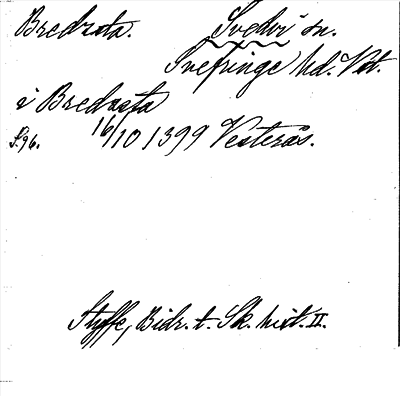 Bredsta. Svedvi sn.
Snefringe hd. Vstm.
i Bredasta
S. 96. 16/10 1399 Vesterås.
Styffe, Bidr. t. Sk. hist. II.